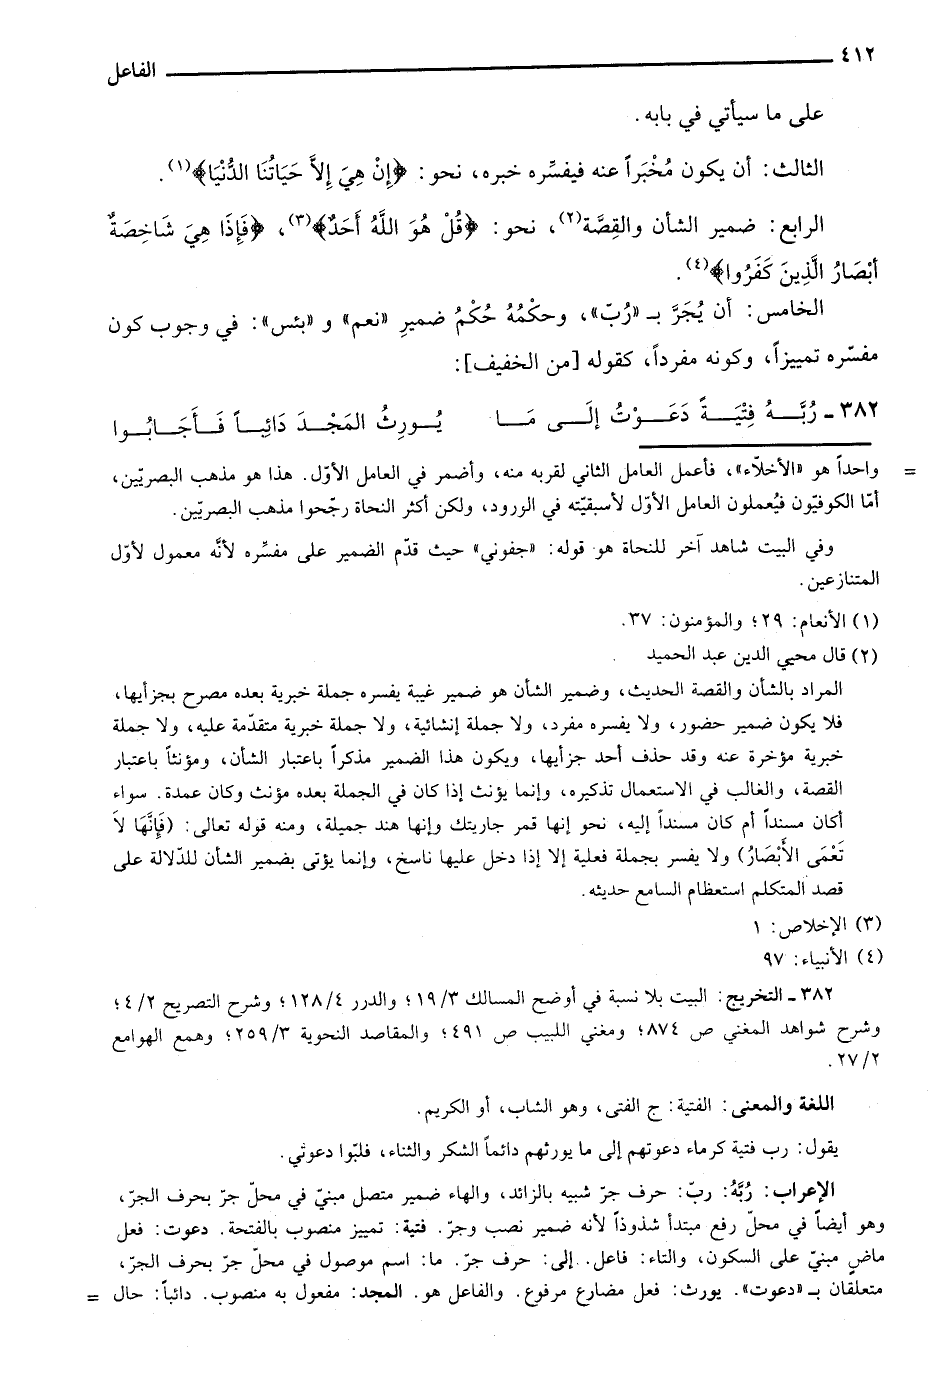 ٤١٢ الفاعل
على ما سيأتي في بابه.
الثالث: أن يكون مُخْبَراً عنه فيفسِّره خبره، نحو: ﴿إِنْ هِيَ إِلاَّ حَيَاتُنَا الدُّنْيَا﴾(١).
الرابع: ضمير الشأن والقِصَّة(٢)، نحو: ﴿قُلْ هُوَ اللَّهُ أَحَدٌ﴾(٣)، ﴿فَإِذَا هِيَ شَاخِصَةٌ
أَبْصَارُ الَّذِينَ كَفَرُوا﴾(٤).
الخامس: أن يُجَرَّ بـ «رُبّ»، وحكْمُهُ حُكْمُ ضميرِ «نعم» و «بئس»: في وجوب كون
مفسّره تمييزاً، وكونه مفرداً، كقوله [من الخفيف]:
٣٨٢ ـ رُبَّـهُ فِتْيَـةً دَعَـوْتُ إِلَـى مَـا يُـورِثُ المَجْـدَ دَائِبـاً فَـأَجَـابُـوا
= واحداً هو «الأخلّاء»، فأعمل العامل الثاني لقربه منه، وأضمر في العامل الأوّل. هذا هو مذهب البصريّين،
أمّا الكوفيّون فيُعملون العامل الأوّل لأسبقيّته في الورود، ولكن أكثر النحاة رجّحوا مذهب البصريّين.
وفي البيت شاهد آخر للنحاة هو قوله: «جفوني» حيث قدّم الضمير على مفسِّره لأنَّه معمول لأوّل
المتنازعين.
(١) الأنعام: ٢٩؛ والمؤمنون: ٣٧.
(٢) قال محيي الدين عبد الحميد
المراد بالشأن والقصة الحديث، وضمير الشأن هو ضمير غيبة يفسره جملة خبرية بعده مصرح بجزأيها،
فلا يكون ضمير حضور، ولا يفسره مفرد، ولا جملة إنشائية، ولا جملة خبرية متقدّمة عليه، ولا جملة
خبرية مؤخرة عنه وقد حذف أحد جزأيها، ويكون هذا الضمير مذكراً باعتبار الشأن، ومؤنثاً باعتبار
القصة، والغالب في الاستعمال تذكيره، وإنما يؤنث إذا كان في الجملة بعده مؤنث وكان عمدة. سواء
أكان مسنداً أم كان مسنداً إليه، نحو إنها قمر جاريتك وإنها هند جميلة، ومنه قوله تعالى: (فَإِنَّهَا لاَ
تَعْمَى الأَبْصَارُ) ولا يفسر بجملة فعلية إلا إذا دخل عليها ناسخ، وإنما يؤتى بضمير الشأن للدّلالة على
قصد المتكلم استعظام السامع حديثه.
(٣) الإخلاص: ١
(٤) الأنبياء: ٩٧
٣٨٢ ـ التخريج: البيت بلا نسبة في أوضح المسالك ١٩/٣؛ والدرر ١٢٨/٤؛ وشرح التصريح ٤/٢؛
وشرح شواهد المغني ص ٨٧٤؛ ومغني اللبيب ص ٤٩١؛ والمقاصد النحوية ٢٥٩/٣؛ وهمع الهوامع
٢٧/٢.
اللغة والمعنى: الفتية: ج الفتى، وهو الشاب، أو الكريم.
يقول: رب فتية كرماء دعوتهم إلى ما يورثهم دائماً الشكر والثناء، فلبّوا دعوتي.
الإعراب: رُبَّهُ: ربّ: حرف جرّ شبيه بالزائد، والهاء ضمير متصل مبنيّ في محلّ جرّ بحرف الجرّ،
وهو أيضاً في محلّ رفع مبتدأ شذوذاً لأنه ضمير نصب وجرّ. فتية: تمييز منصوب بالفتحة. دعوت: فعل
ماضٍ مبنيّ على السكون، والتاء: فاعل. إلى: حرف جرّ. ما: اسم موصول في محلّ جرّ بحرف الجرّ،
متعلقان بـ «دعوت». يورث: فعل مضارع مرفوع. والفاعل هو. المجد: مفعول به منصوب. دائباً: حال =